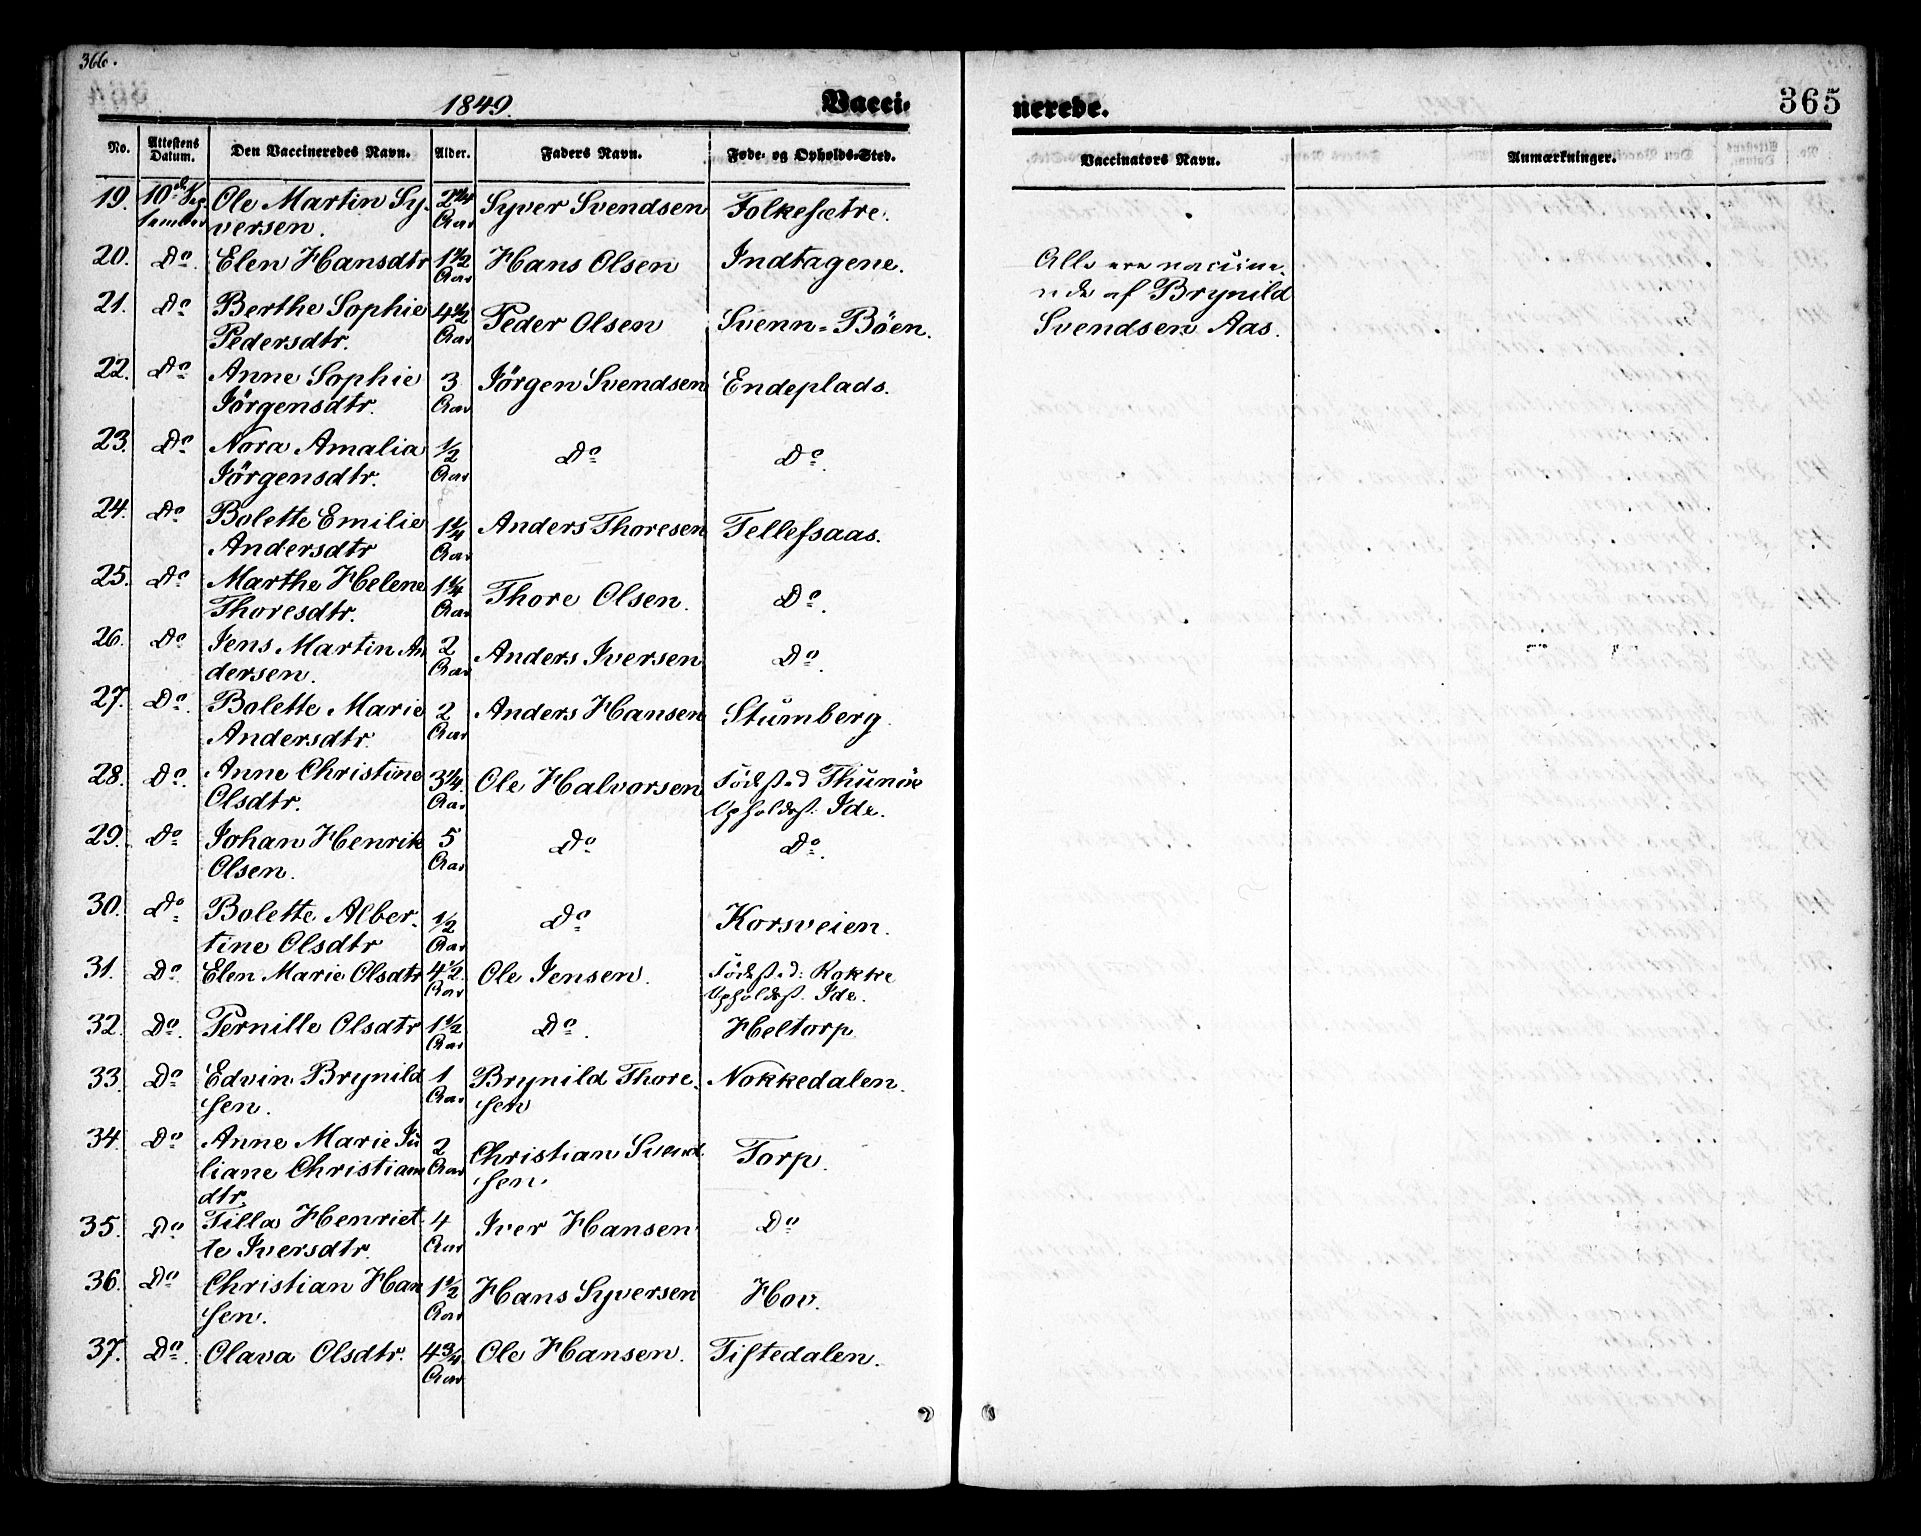 366.
1849.
Vacci-
nerede.
365
No.
Attestens Datum.
Den Vaccineredes Navn.
Alder.
Faders Navn.
Føde- og Opholds-Sted.
Vaccinators Navn.
Anmærkninger.
19. 10de Sep- Ole Martin Sy- 2 1/4 Syver Svendsen Folkesætre.
tember versen. Aar
20. Do. Elen Hansdtr 1 1/2 Hans Olsen Indtagene.
Aar
Alle ere vaccine-
rede af Brynild
Svendsen Aas.
21. Do Berthe Sophie 4 1/2 Peder Olsen Svenn-Böen.
Pedersdtr. Aar
22. Do Anne Sophie 3 Jörgen Svendsen Endeplads.
Jörgensdtr. Aar
23. Do Nora Amalia 1/2 Do Do.
Jörgensdtr. Aar
24. Do Bolette Emilie 1 1/4 Anders Thoresen Tellefsaas.
Andersdtr Aar
25. Do Marthe Helene 1 1/4 Thore Olsen. Do.
Thoresdtr. Aar
26. Do Jens Martin An 2 Anders Iversen Do.
dersen. Aar
27. Do. Bolette Marie 2 Anders Hansen Stumberg.
Andersdtr. Aar
28. Do. Anne Christine 3 1/4 Ole Halvorsen Födested Thunöe
Olsdtr. Aar Opholdsst: Ide.
29. Do Johan Henrik 5 Do Do.
Olsen. Aar
30. Do Bolette Alber- 1/2 Do Korsveien.
tine Olsdtr Aar
31. Do Elen Marie Olsdtr 4 1/2 Ole Jensen. Födested: Rokke
Aar Opholdsst. Ide.
32. Do. Pernille Olsdtr 1 1/2 Do. Heltorp.
Aar
33. Do Edvin Brynild 1 Brynild Thore- Nokkedalen.
sen. Aar sen
34. Do Anne Marie Ju 2 Christian Svend- Torp.
liane Christians Aar sen
dtr.
35. Do Tilla Henriet- 4 Iver Hansen Do
te Iversdtr. Aar
36. Do Christian Han 1 1/2 Hans Syversen Hov.
sen. Aar
37. Do. Olava Olsdtr. 4 3/4 Ole Hansen. Tistedalen.
Aar